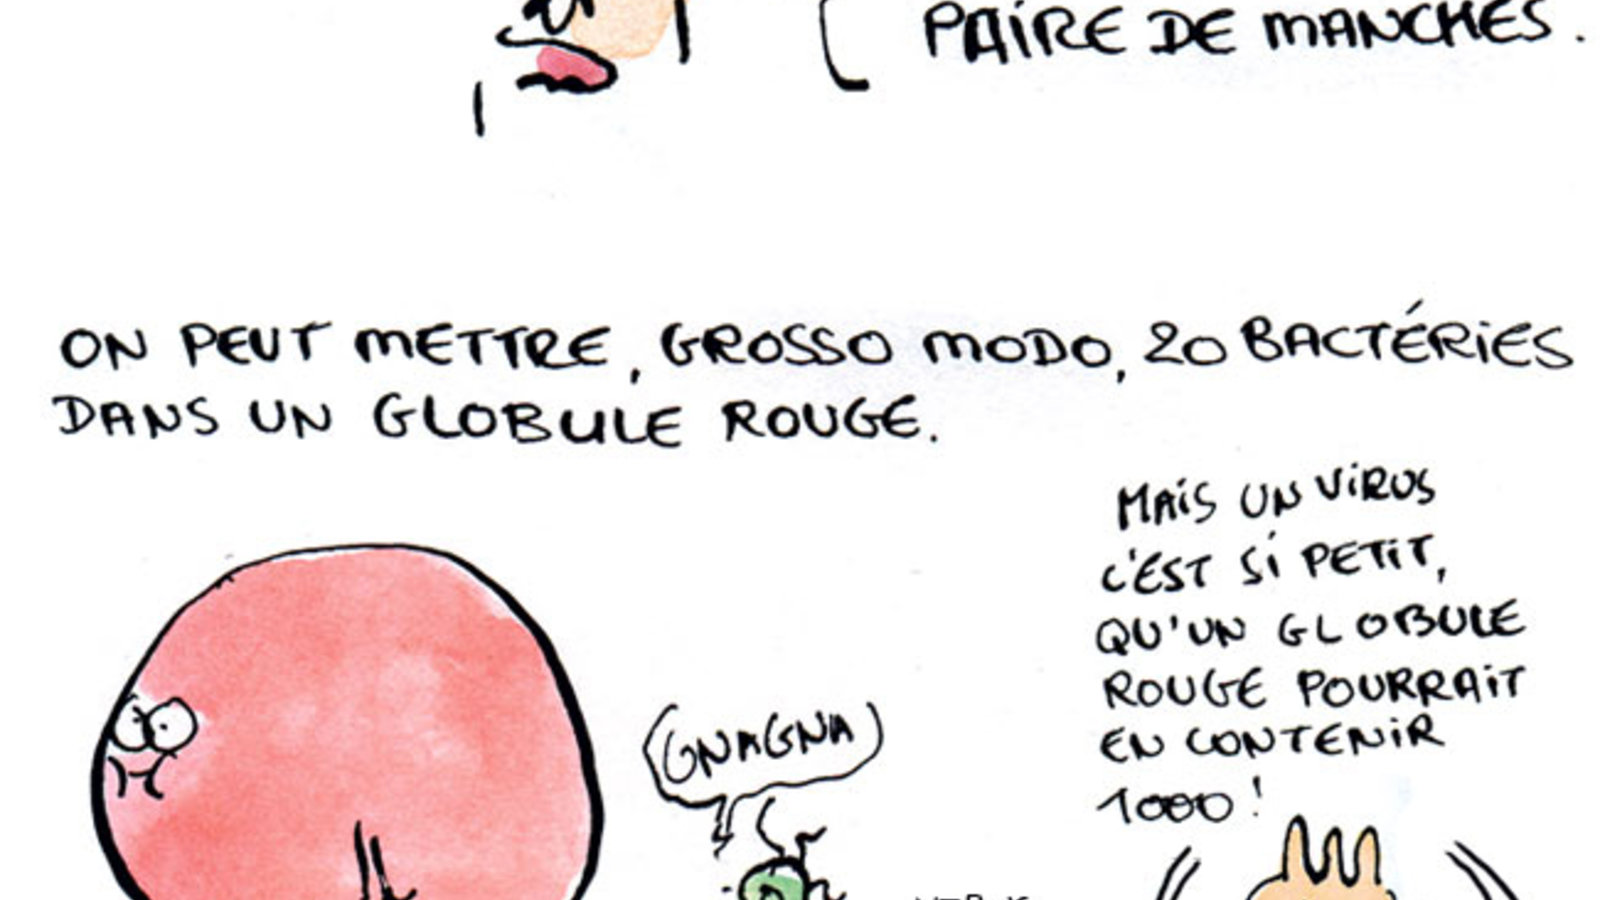 PAIRE DE MANCHES.
ON PEUT METTRE, GROSSO MODO, 20 BACTÉRIES
DANS UN GLOBULE ROUGE.
MAIS UN VIRUS
C'EST SI PETIT,
QU'UN GLOBULE
ROUGE POURRAIT
EN CONTENIR
1000!
GNAGNA